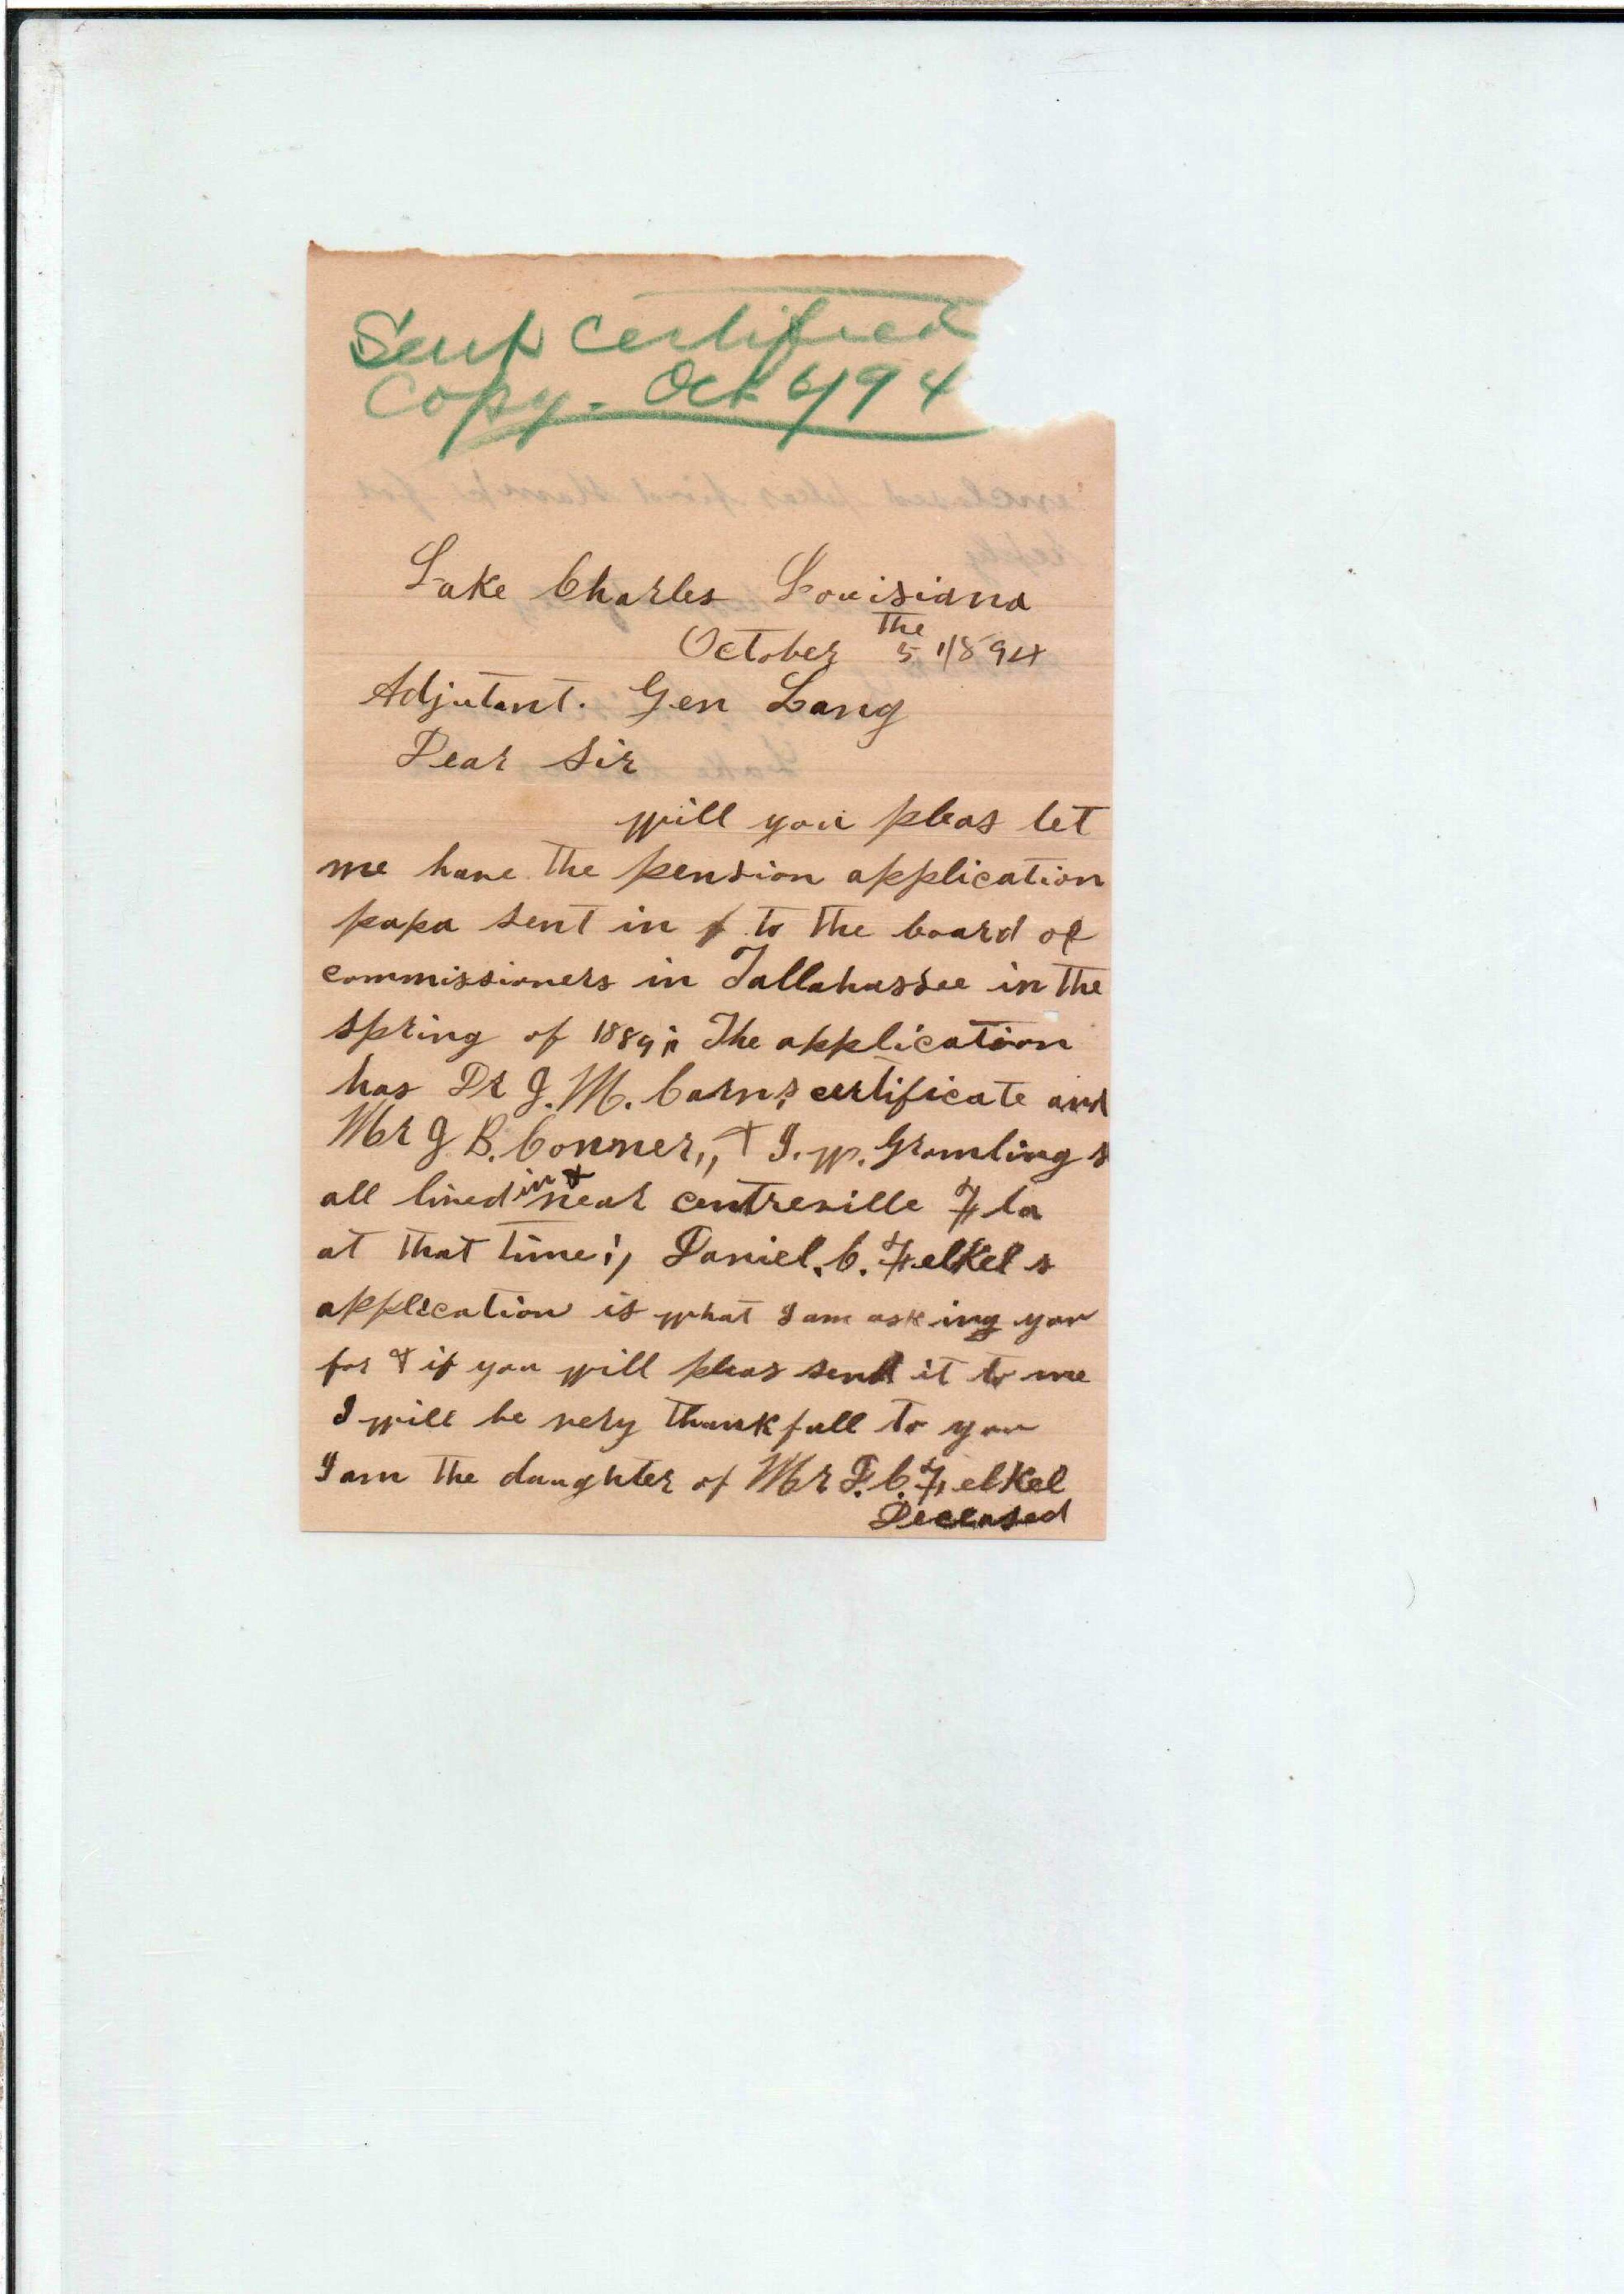 Sent Certified
Copy. Oct 6/94
Lake Charles Louisiana
October the 5 1894
Adjutant. Gen Lang
Dear Sir
will you pleas let
me have the pension application
papa sent in to the board of
commissioners in Tallahassee in the
spring of 1889; The application
has Dr J. M. Carns certificate and
Mr J B. Conner,, & J. W. Gramling s
all lived in & near centreville Fla
at that time;, Daniel. C. Felkel s
application is what I am asking you
for & if you will pleas send it to me
I will be very thankfull to you
I am the daughter of Mr D. C. Felkel
Deceased